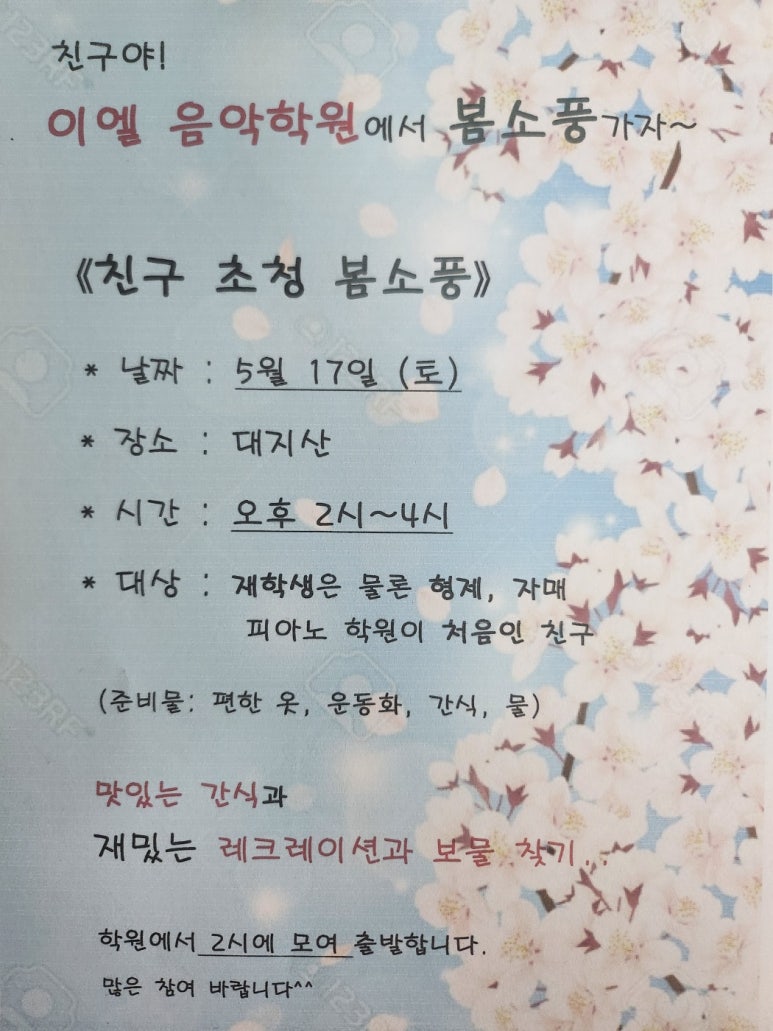 친구야!
이엘 음악학원에서 봄소풍가자~
《친구 초청 봄소풍》
* 날짜 : 5월 17일 (토)
* 장소 : 대지산
* 시간 : 오후 2시~4시
* 대상 : 재학생은 물론 형제, 자매
피아노 학원이 처음인 친구
(준비물: 편한 옷, 운동화, 간식, 물)
맛있는 간식과
재밌는 레크레이션과 보물 찾기...
학원에서 2시에 모여 출발합니다.
많은 참여 바랍니다^^